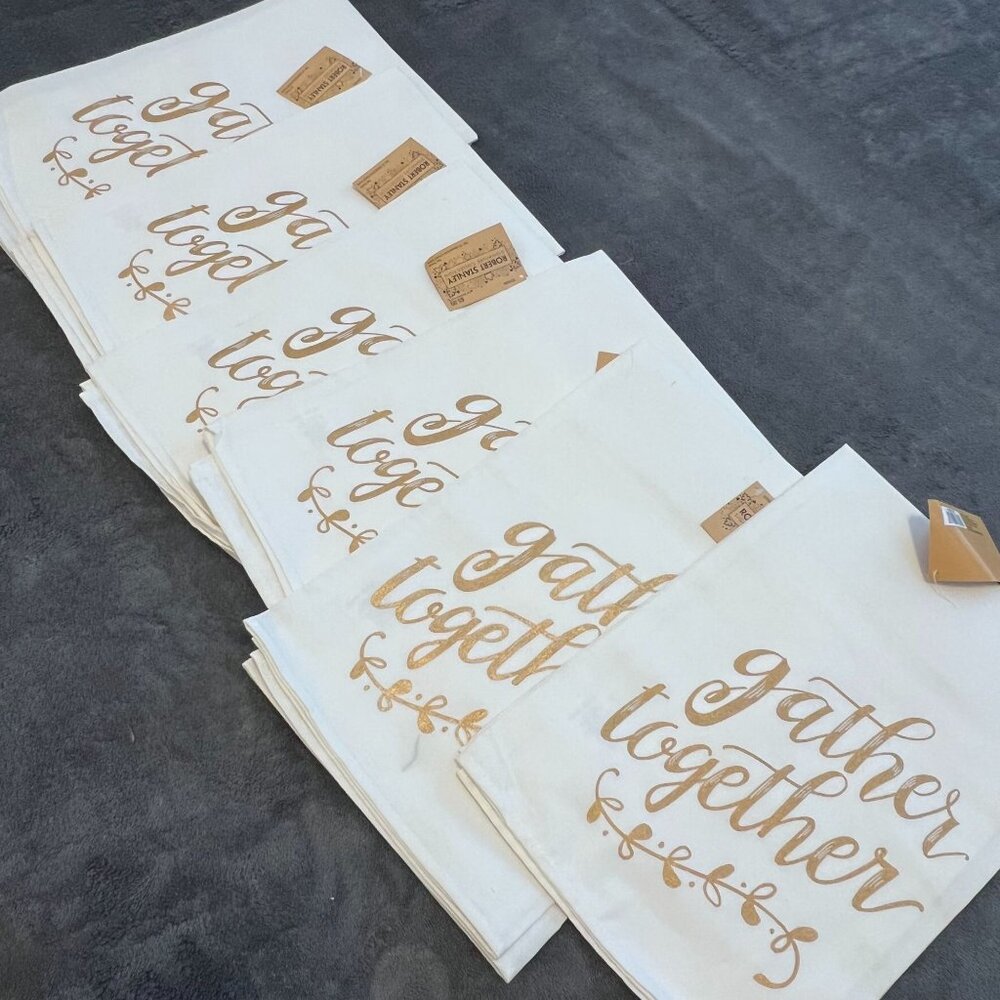 ga
togel
ROBERT STANLEY
ga
togel
ROBERT STANLEY
ga
tog
ROBERT STANLEY
ga
toge
gath
togeth
gather
together